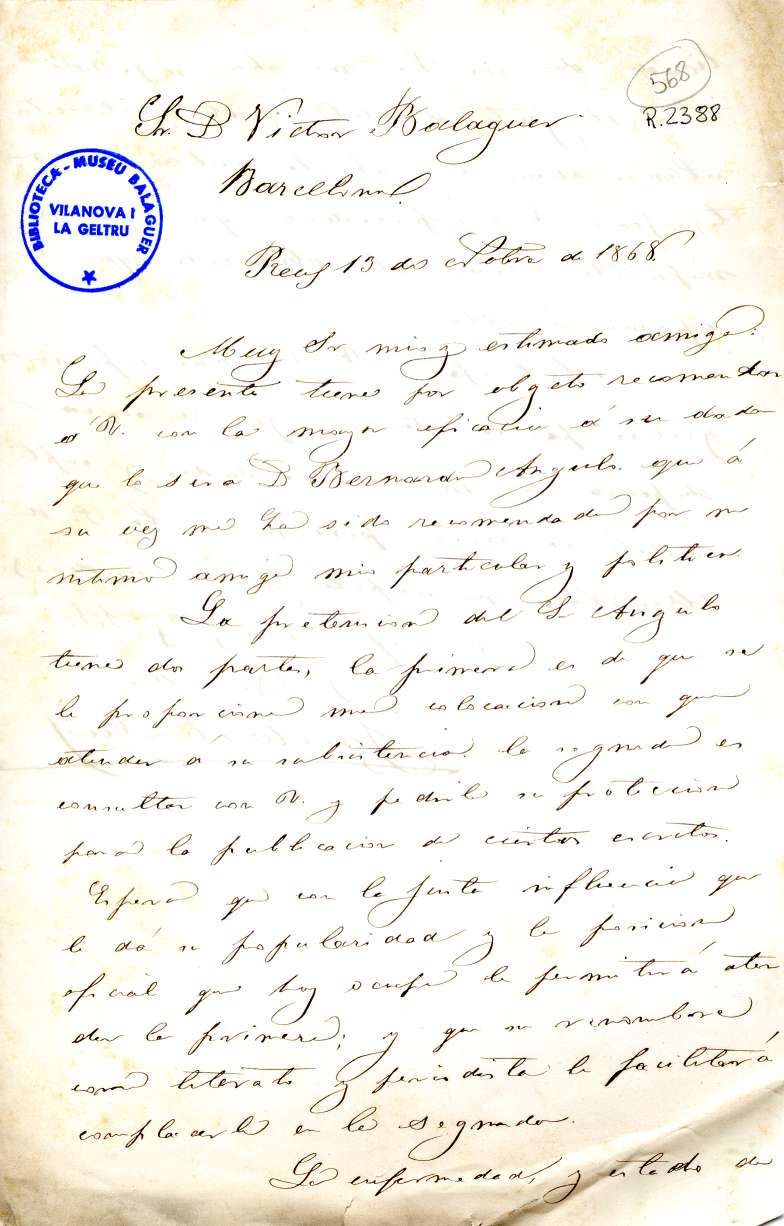 568
R.2388
Sr. D Victor Balaguer.
Barcelona.
BIBLIOTECA - MUSEU BALAGUER
VILANOVA I
LA GELTRU
Reus 13 de Octobre de 1868.
Muy Sr mio y estimado amigo:
La presente tiene por objeto recomendar
á V. con la mayor eficacia á su dador
que lo sera D Bernardo Angulo. que á
su vez me ha sido recomendado por un
intimo amigo mio particular y politico.
La pretencion del Sr Angulo
tiene dos partes, la primera es de que se
le proporcione una colocacion con que
atender á su subsistencia. la segunda es
consultar con V. y pedirle su proteccion
para la publicacion de ciertos escritos.
Espero que con la justa influencia que
le dá su popularidad y la posicion
oficial que hoy ocupa le permitirá aten
der la primera; y que su renombre
como literato y periodista le facilitará
complacerle en la segunda.
La enfermedad, y estado de